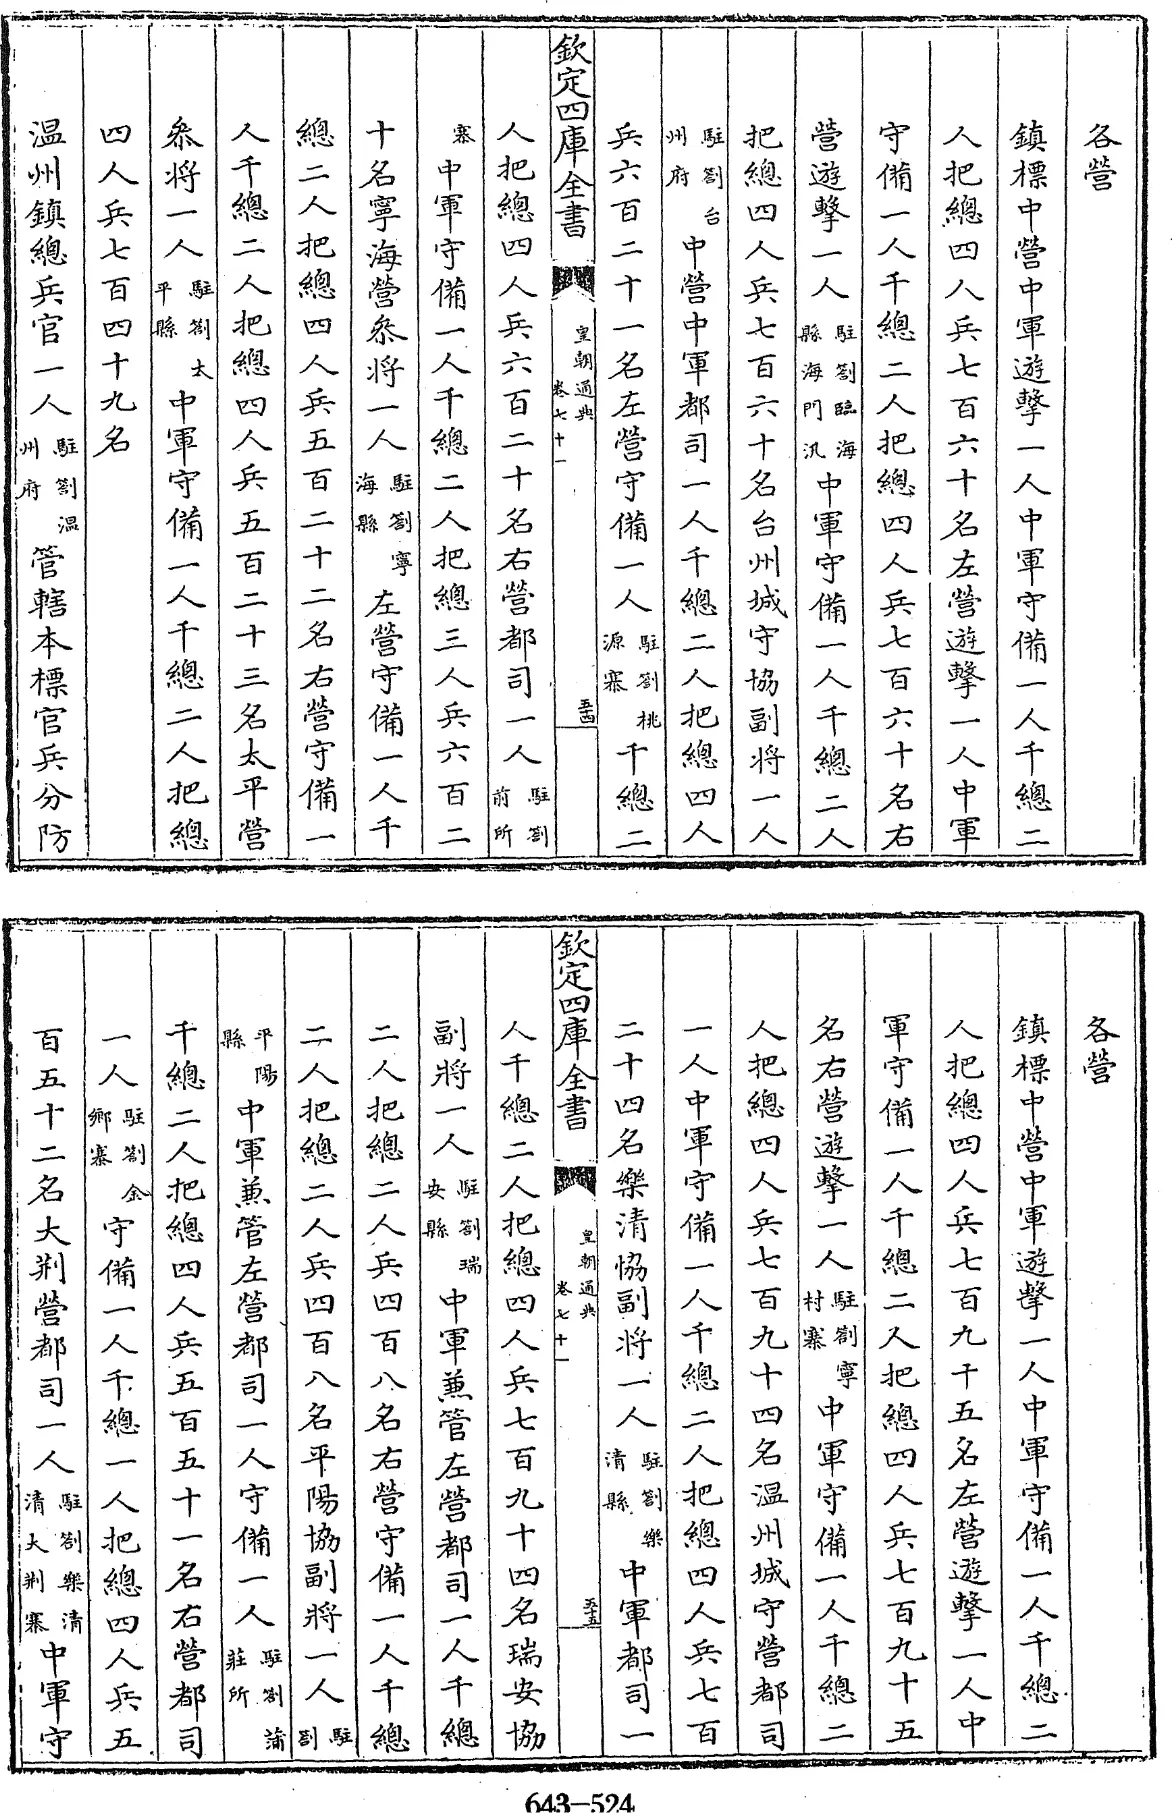 各營
鎮標中營中軍遊擊一人中軍守備一人千總二
人把總四人兵七百六十名左營遊擊一人中軍
守備一人千總二人把總四人兵七百六十名右
營遊擊一人駐劄臨海縣海門汛中軍守備一人千總二人
把總四人兵七百六十名台州城守協副將一人
駐劄台州府中營中軍都司一人千總二人把總四人
兵六百二十一名左營守備一人駐劄桃源寨千總二
欽定四庫全書 皇朝通典 卷七十一 五十四
人把總四人兵六百二十名右營都司一人駐劄前所
寨中軍守備一人千總二人把總三人兵六百二
十名寧海營叅將一人駐劄寧海縣左營守備一人千
總二人把總四人兵五百二十二名右營守備一
人千總二人把總四人兵五百二十三名太平營
叅將一人駐劄太平縣中軍守備一人千總二人把總
四人兵七百四十九名
温州鎮總兵官一人駐劄温州府管轄本標官兵分防
各營
鎮標中營中軍遊擊一人中軍守備一人千總二
人把總四人兵七百九十五名左營遊擊一人中
軍守備一人千總二人把總四人兵七百九十五
名右營遊擊一人駐劄寧村寨中軍守備一人千總二
人把總四人兵七百九十四名温州城守營都司
一人中軍守備一人千總二人把總四人兵七百
二十四名樂清協副將一人駐劄樂清縣中軍都司一
欽定四庫全書 皇朝通典 卷七十一 五十五
人千總二人把總四人兵七百九十四名瑞安協
副將一人駐劄瑞安縣中軍兼管左營都司一人千總
二人把總二人兵四百八名右營守備一人千總
二人把總二人兵四百八名平陽協副將一人駐劄
平陽縣中軍兼管左營都司一人守備一人駐劄蒲莊所
千總二人把總四人兵五百五十一名右營都司
一人駐劄金鄉寨守備一人千總一人把總四人兵五
百五十二名大荆營都司一人駐劄樂清大荆寨中軍守
643-524